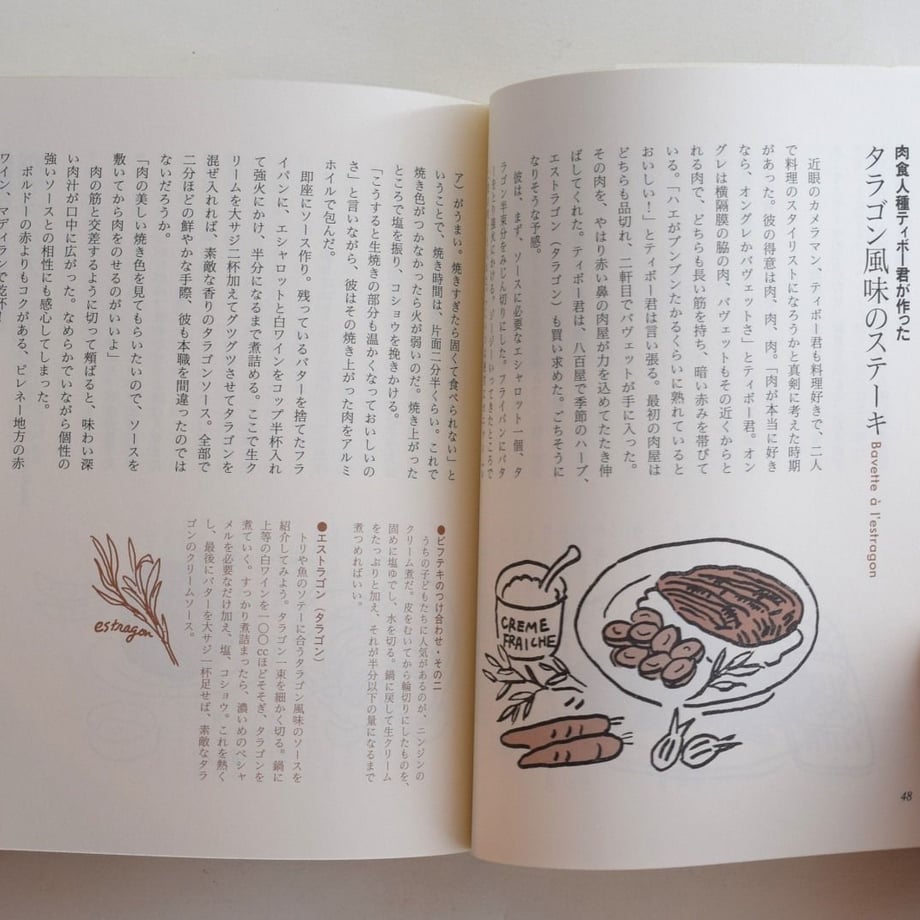 肉食人種ティボー君が作った
タラゴン風味のステーキ
Bavette à l'estragon
近眼のカメラマン、ティボー君も料理好きで、二人
で料理のスタイリストになろうかと真剣に考えた時期
があった。彼の得意は肉、肉、肉。「肉が本当に好き
なら、オングレかバヴェットさ」とティボー君。オン
グレは横隔膜の脇の肉、バヴェットもその近くからと
れる肉で、どちらも長い筋を持ち、暗い赤みを帯びて
いる。「ハエがブンブンたかるくらいに熟れていると
おいしい！」とティボー君は言い張る。最初の肉屋は
どちらも品切れ、二軒目でバヴェットが手に入った。
その肉を、やはり赤い鼻の肉屋が力を込めてたたき伸
ばしてくれた。ティボー君は、八百屋で季節のハーブ、
エストラゴン（タラゴン）も買い求めた。ごちそうに
なりそうな予感。
彼は、まず、ソースに必要なエシャロット一個、タ
ラゴン半束分をみじん切りにした。フライパンにバタ
ア）がうまい。焼きすぎたら固くて食べられない」と
いうことで、焼き時間は、片面二分半くらい。これで
焼き色がつかなかったら火が弱いのだ。焼き上がった
ところで塩を振り、コショウを挽きかける。
「こうすると生焼きの部分も温かくなっておいしいの
さ」と言いながら、彼はその焼き上がった肉をアルミ
ホイルで包んだ。
即座にソース作り。残っているバターを捨てたフラ
イパンに、エシャロットと白ワインをコップ半杯入れ
て強火にかけ、半分になるまで煮詰める。ここで生ク
リームを大サジ二杯加えてグツグツさせてタラゴンを
混ぜ入れれば、素敵な香りのタラゴンソース。全部で
二分ほどの鮮やかな手際、彼も本職を間違ったのでは
ないだろうか。
「肉の美しい焼き色を見てもらいたいので、ソースを
敷いてから肉をのせるのがいいよ」
肉の筋と交差するように切って頬ばると、味わい深
い肉汁が口中に広がった。なめらかでいながら個性の
強いソースとの相性にも感心してしまった。
ボルドーの赤よりもコクがある、ピレネー地方の赤
ワイン、マディランで乾杯！
●ビフテキのつけ合わせ・その二
うちの子どもたちに人気があるのが、ニンジンの
クリーム煮だ。皮をむいてから輪切りにしたものを、
固めに塩ゆでし、水を切る。鍋に戻して生クリーム
をたっぷりと加え、それが半分以下の量になるまで
煮つめればいい。
●エストラゴン（タラゴン）
トリや魚のソテーに合うタラゴン風味のソースを
紹介してみよう。タラゴン一束を細かく切る。鍋に
上等の白ワインを一〇〇ccほどそそぎ、タラゴンを
煮ていく。すっかり煮詰まったら、濃いめのベシャ
メルを必要なだけ加え、塩、コショウ。これを熱く
し、最後にバターを大サジ一杯足せば、素敵なタラ
ゴンのクリームソース。
estragon
CREME
FRAICHE
48